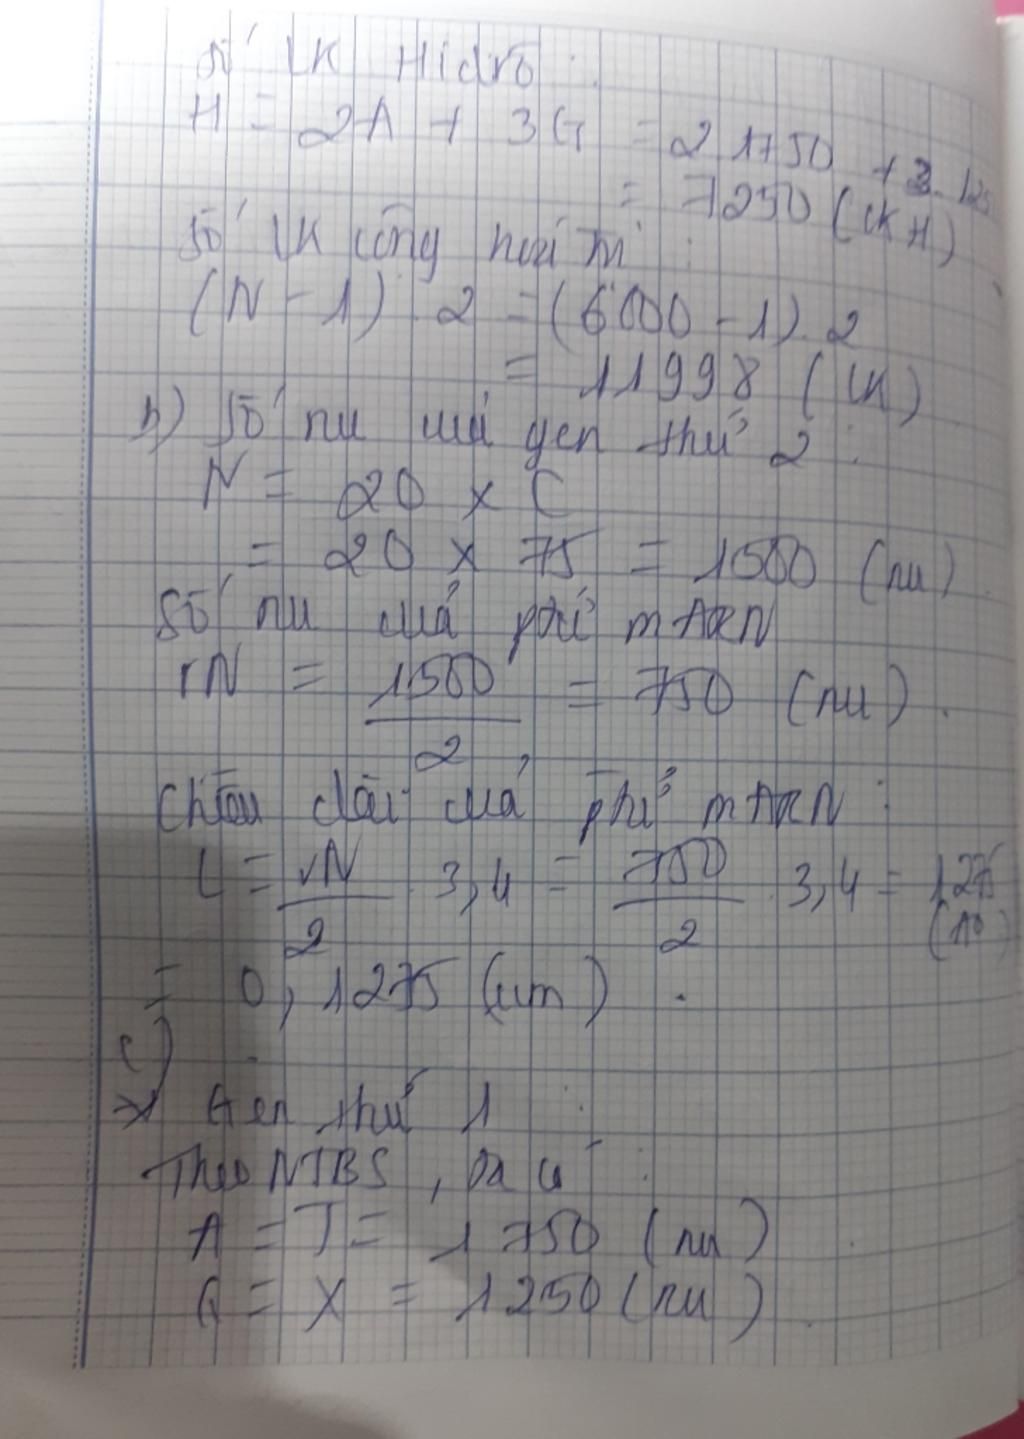 Số LK Hidro :
H = 2A + 3G = 2 1750 + 3. 125
= 7250 (LK H)
Số LK cộng hoá trị :
(N - 1) . 2 = (6000 - 1) . 2
= 11998 (LK)
b) Số nu của gen thứ 2 :
N = 20 x C
= 20 x 75 = 1500 (nu)
Số nu của phtử mARN
rN = 1500/2 = 750 (nu) .
Chiều dài của phtử mARN :
L = rN/2 . 3,4 = 750/2 . 3,4 = 1275 (A°)
= 0,1275 (um) .
c)
* Gen thứ 1 :
Theo NTBS, ta có :
A = T = 1750 (nu)
G = X = 1250 (nu) .